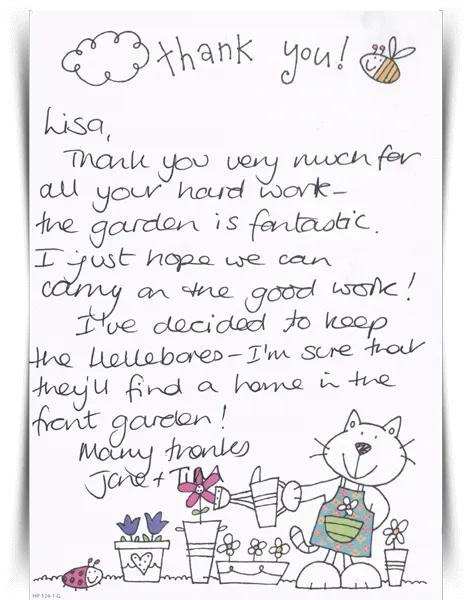 thank you!
Lisa,
Thank you very much for
all your hard work –
the garden is fantastic.
I just hope we can
carry on the good work!
I've decided to keep
the Hellebores – I'm sure that
they'll find a home in the
front garden!
Many thanks
Jane +